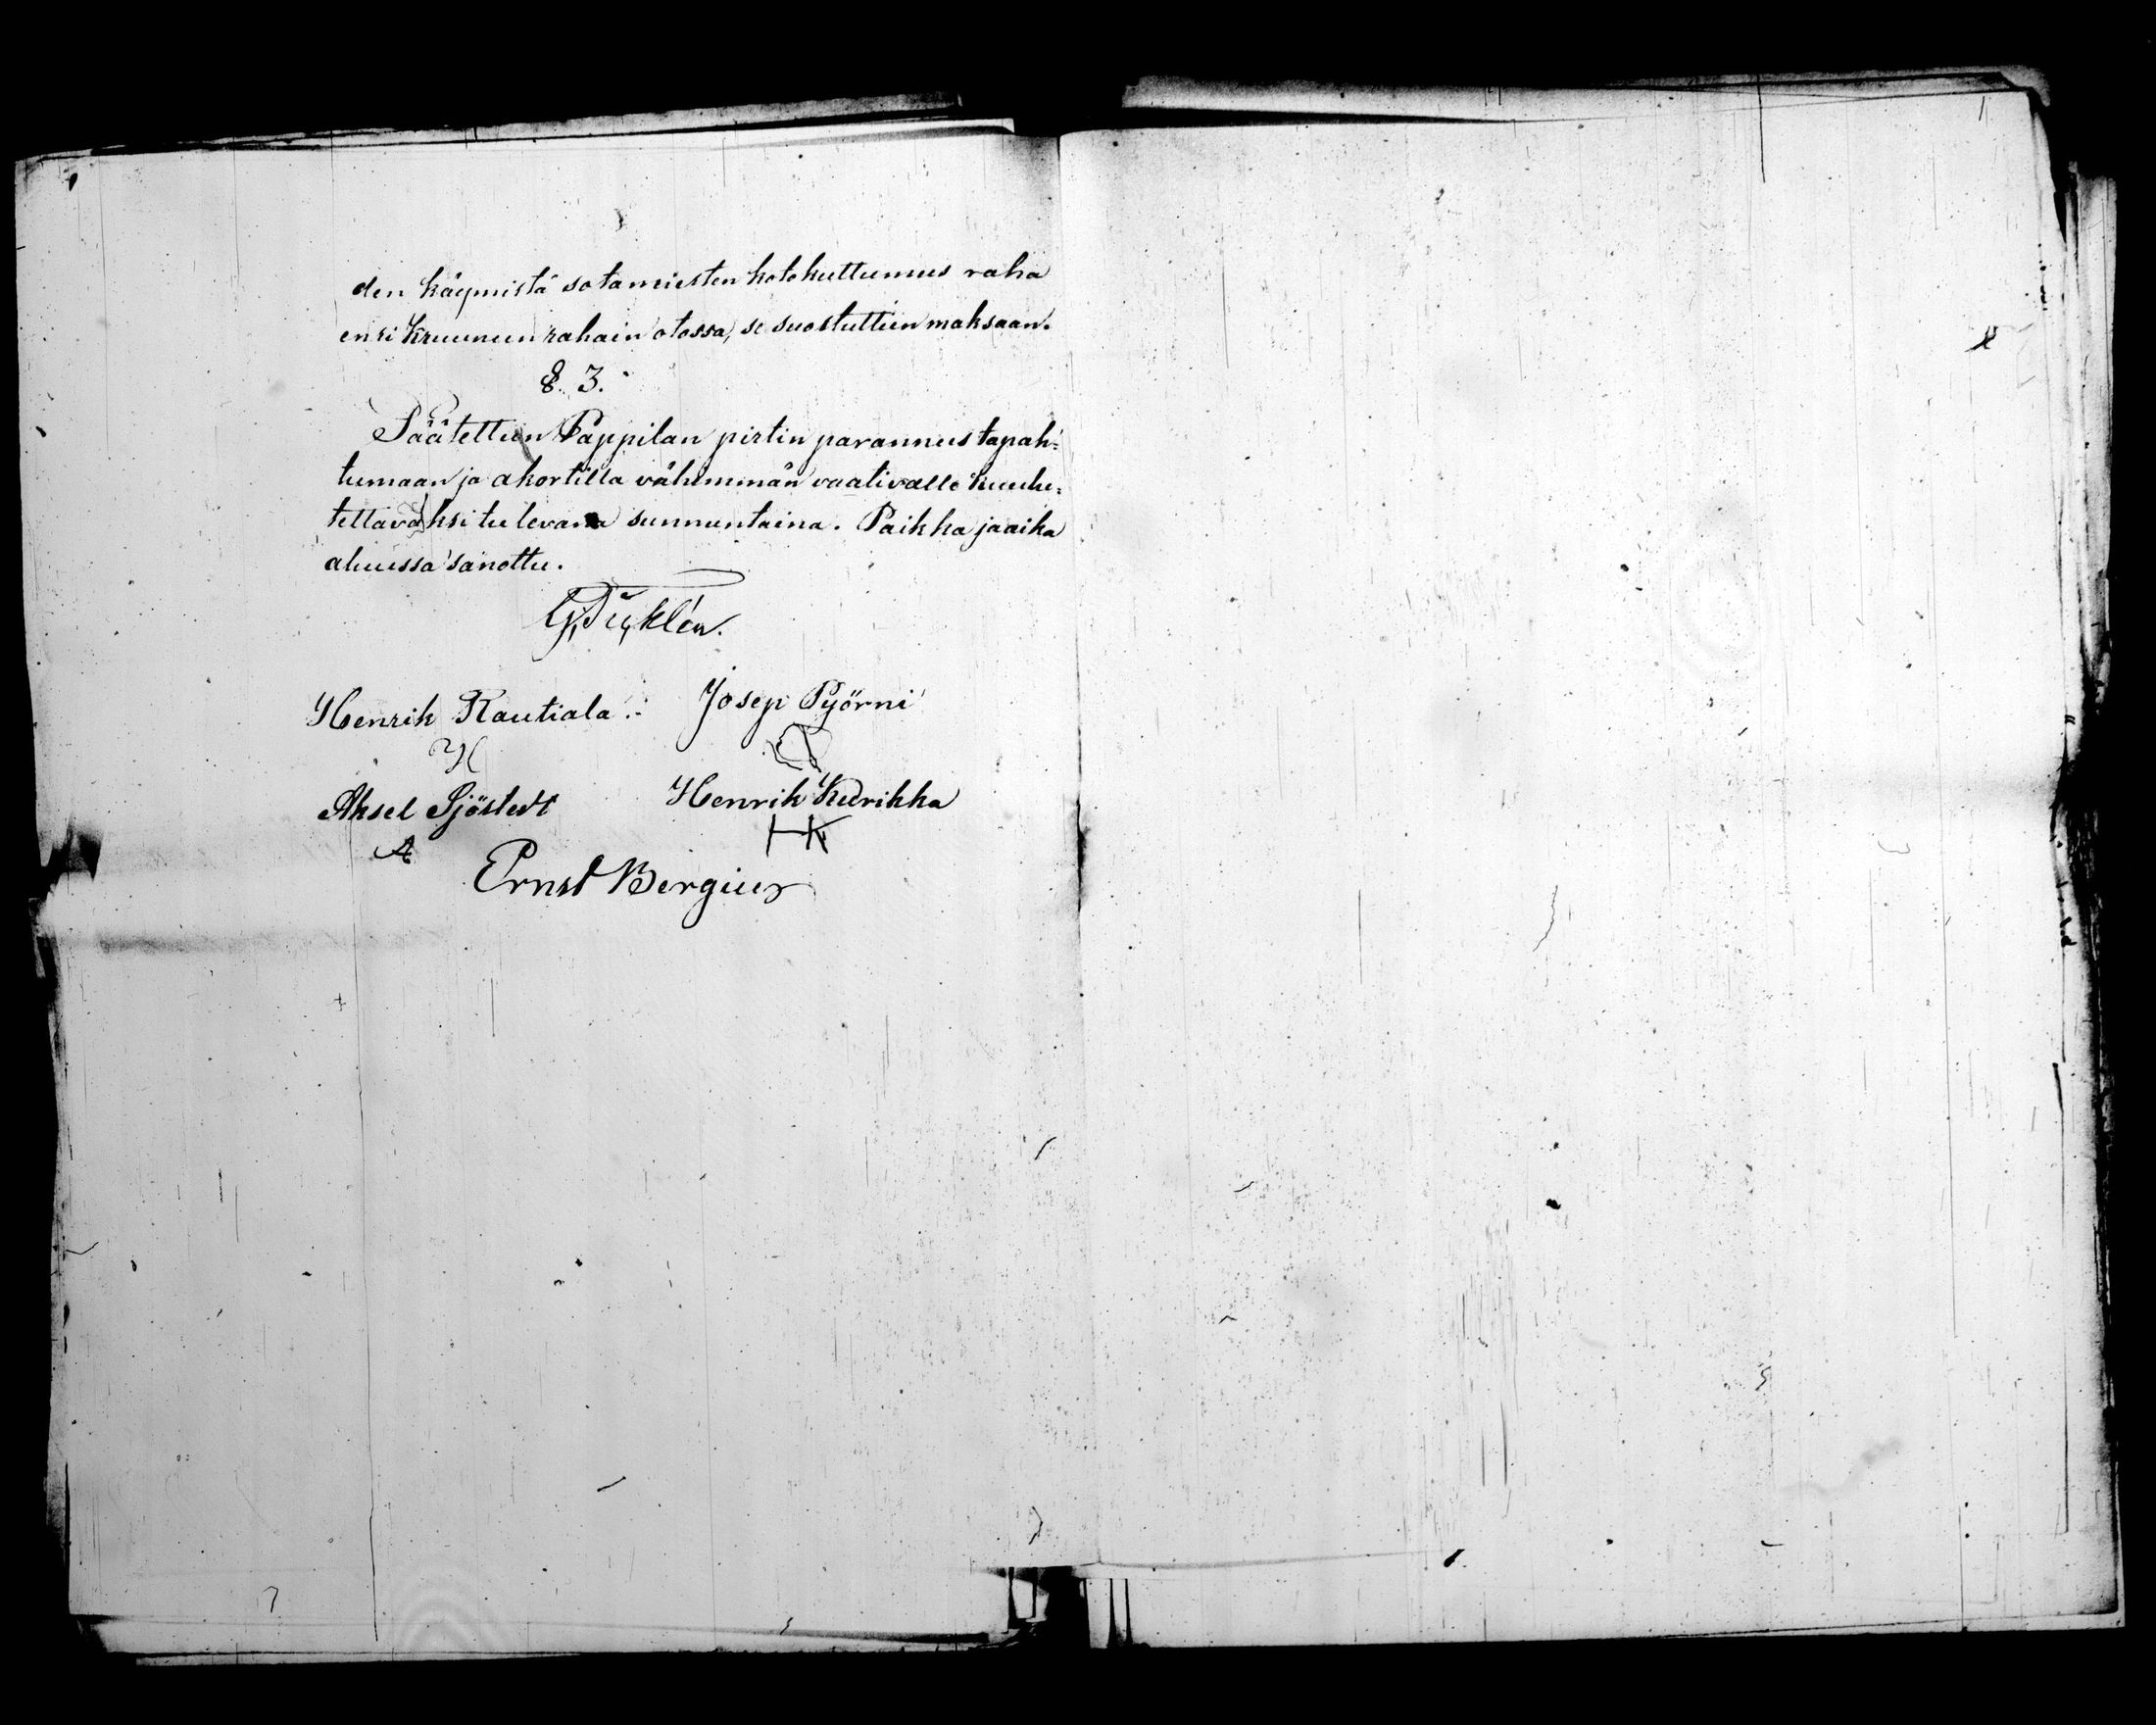 den käymistä sotamiesten kotokuttumus raha
ensi Kruunun rahain otossa, se suostuttiin maksaan.
§. 3.
Päätettiin Pappilan pirtin parannus tapah-
tumaan ja akortilla vähimmän vaativalle kuulu-
tettavaksi tulevana sunnuntaina. Paikka ja aika
aluussa sanottu.
Henrik Rautiala. Josep Pyörni
Aksel Sjöstedt Henrik Kurikka
A HK
Ernst Bergius